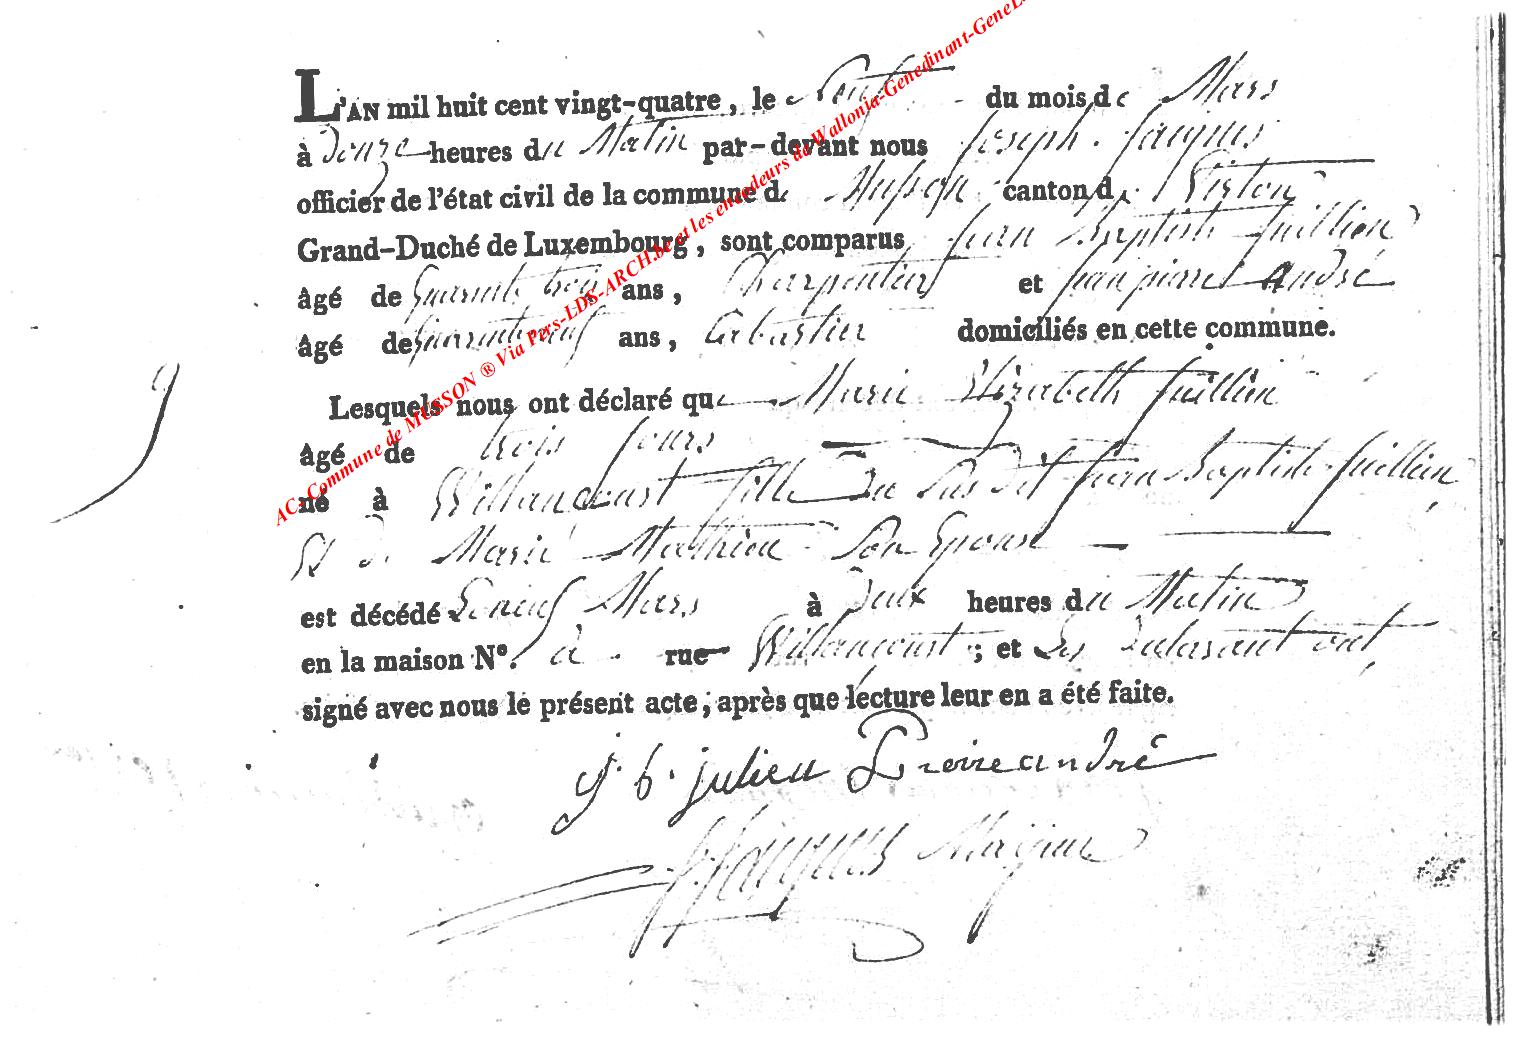 L'AN mil huit cent vingt-quatre, le Neuf du mois de Mars
à Douze heures du Matin par-devant nous Joseph Jacques
officier de l'état civil de la commune de Musson canton de Virton
Grand-Duché de Luxembourg, sont comparus Jean Baptiste Juillien
âgé de Quarante trois ans, Charpentier et Jean pierre André
âgé de Quarante neuf ans, domiciliés en cette commune.
Lesquels nous ont déclaré que Marie Elizabeth Juillien
âgé de trois Jours
né à Willancourt fille Du Sus dit Jean Baptiste Juillien
Et de Marie Mathieu Son Epouse
est décédé Le neuf Mars à Deux heures du Matin
en la maison N°. à rue Willancourt; et Les Declarant ont
signé avec nous le présent acte, après que lecture leur en a été faite.
9
j. b. julien Pierre andré
J Jacques
AC: Commune de MUSSON ® Via Pers-LDS-ARCH.be et les encodeurs de Wallonia-Genedinant-GeneL